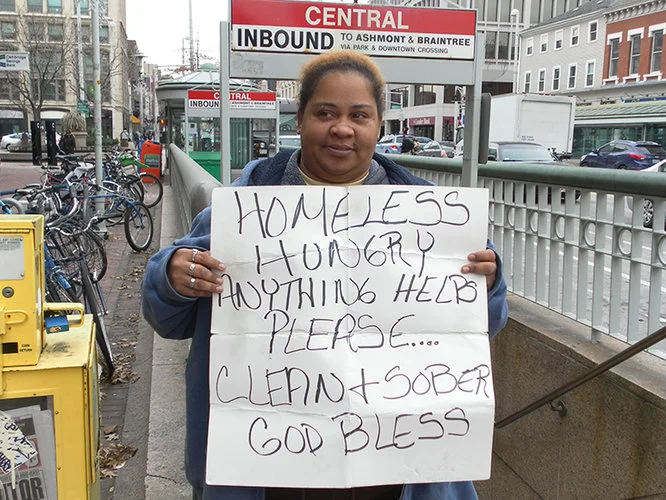 CENTRAL
INBOUND TO ASHMONT & BRAINTREE
VIA PARK & DOWNTOWN CROSSING
CENTRAL
INBOUND TO ASHMONT & BRAINTREE
HOMELESS
HUNGRY
ANYTHING HELPS
PLEASE....
CLEAN & SOBER
GOD BLESS